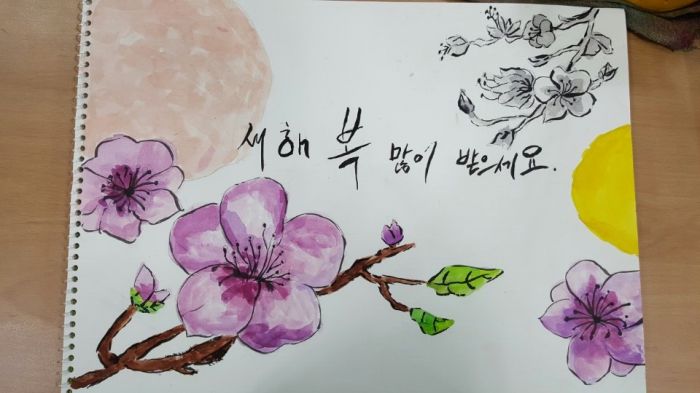 새해 복 많이 받으세요.